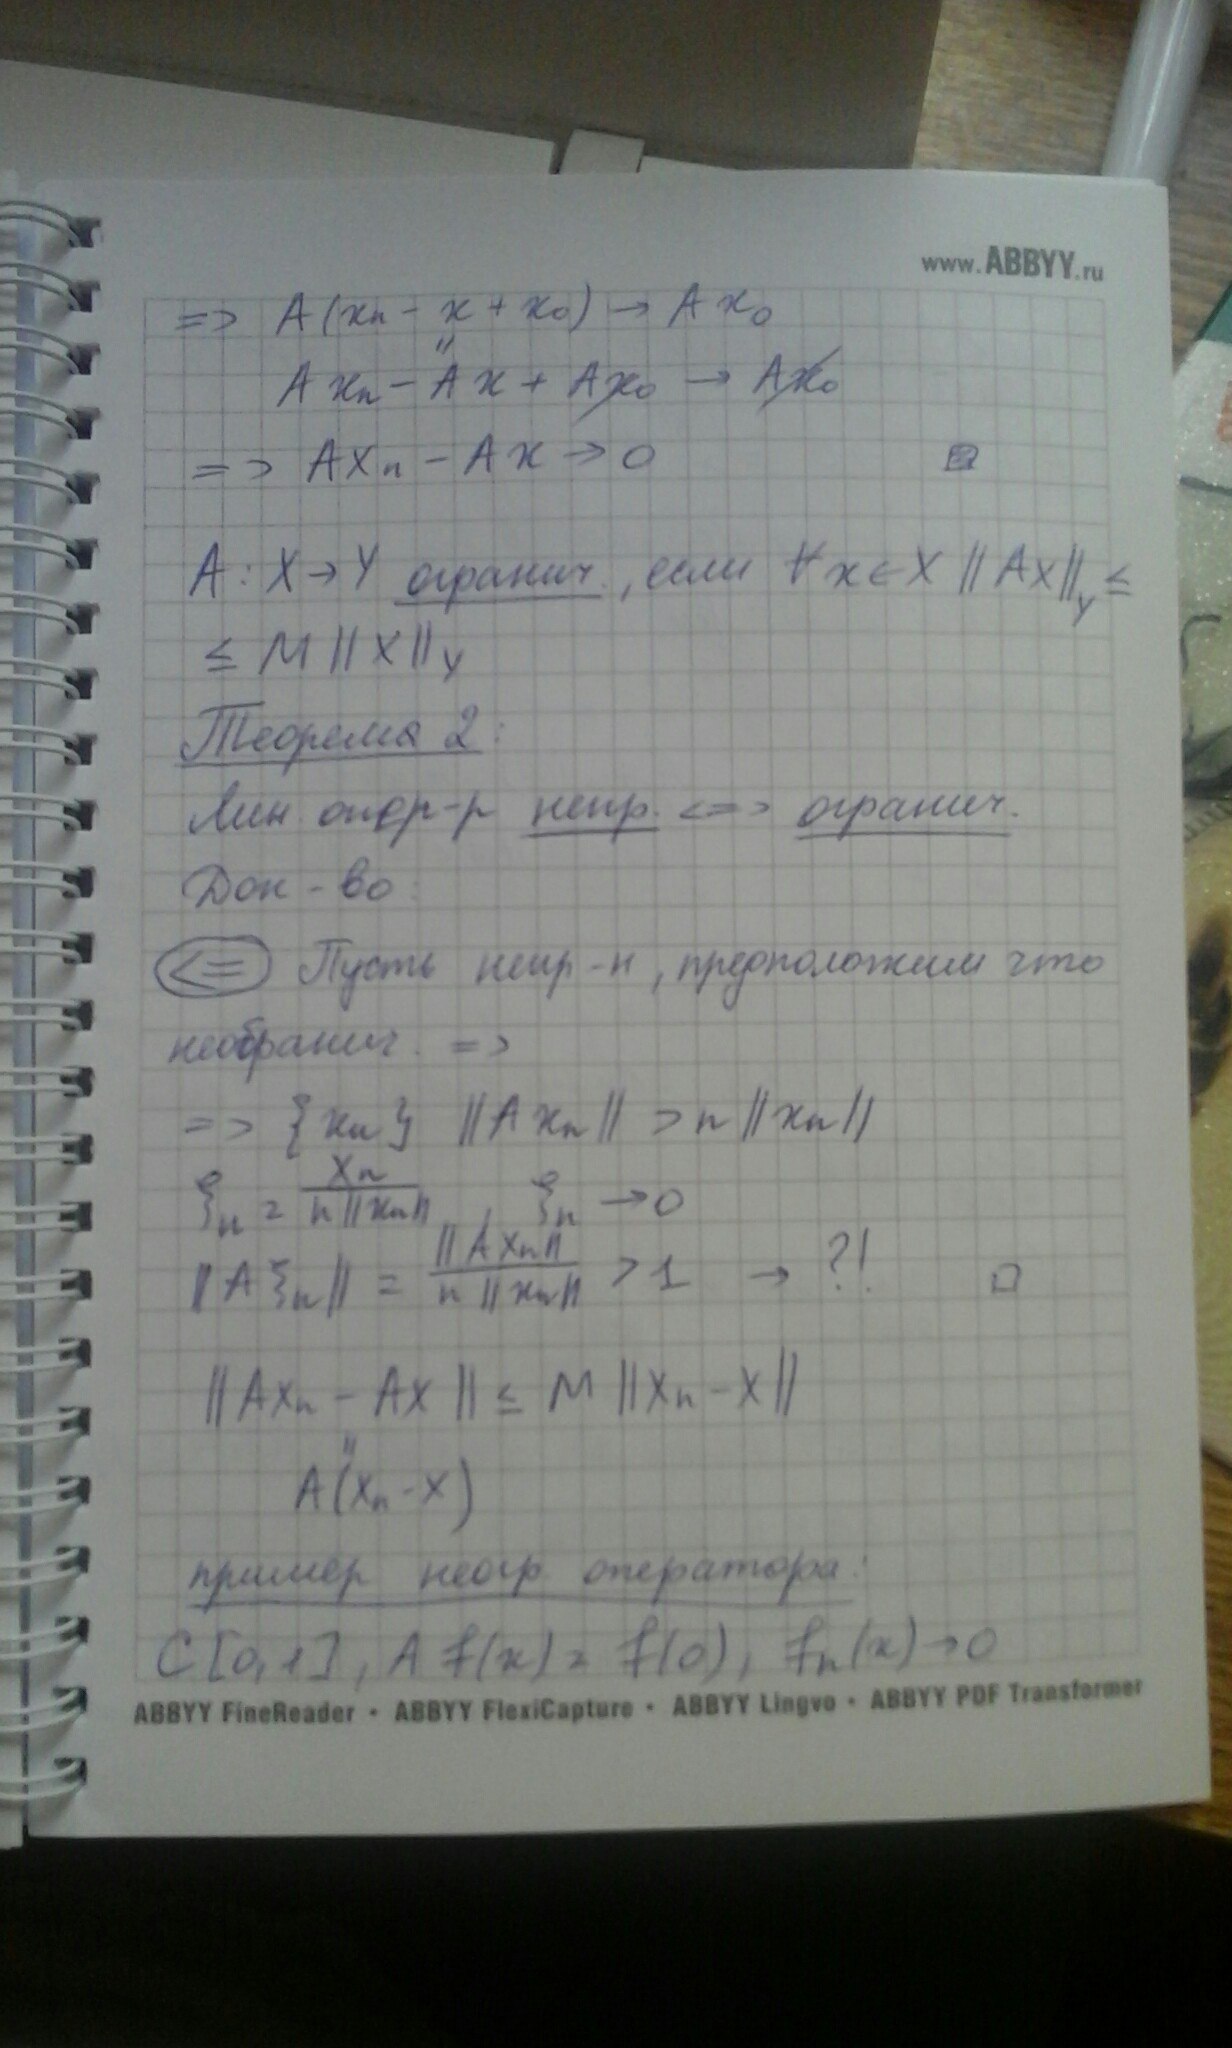 www.ABBYY.ru
=> A(xₙ - x + x₀) → Ax₀
"
Axₙ - Ax + Ax₀ → Ax₀
=> Axₙ - Ax → 0
A : X → Y огранич., если ∀x ∈ X ||Ax||_Y ≤
≤ M ||x||_Y
Теорема 2:
Лин опер-р непр. <=> огранич.
Док-во:
<= Пусть непр-н, предположим что
неогранич. =>
=> {xₙ} ||Axₙ|| > n ||xₙ||
ξₙ = xₙ / n||xₙ|| , ξₙ → 0
||Aξₙ|| = ||Axₙ|| / n||xₙ|| > 1 → ?! □
||Axₙ - Ax|| ≤ M ||xₙ - x||
"
A(xₙ - x)
пример неогр оператора:
C[0,1], A f(x) = f(0), fₙ(x) → 0
ABBYY FineReader • ABBYY FlexiCapture • ABBYY Lingvo • ABBYY PDF Transformer